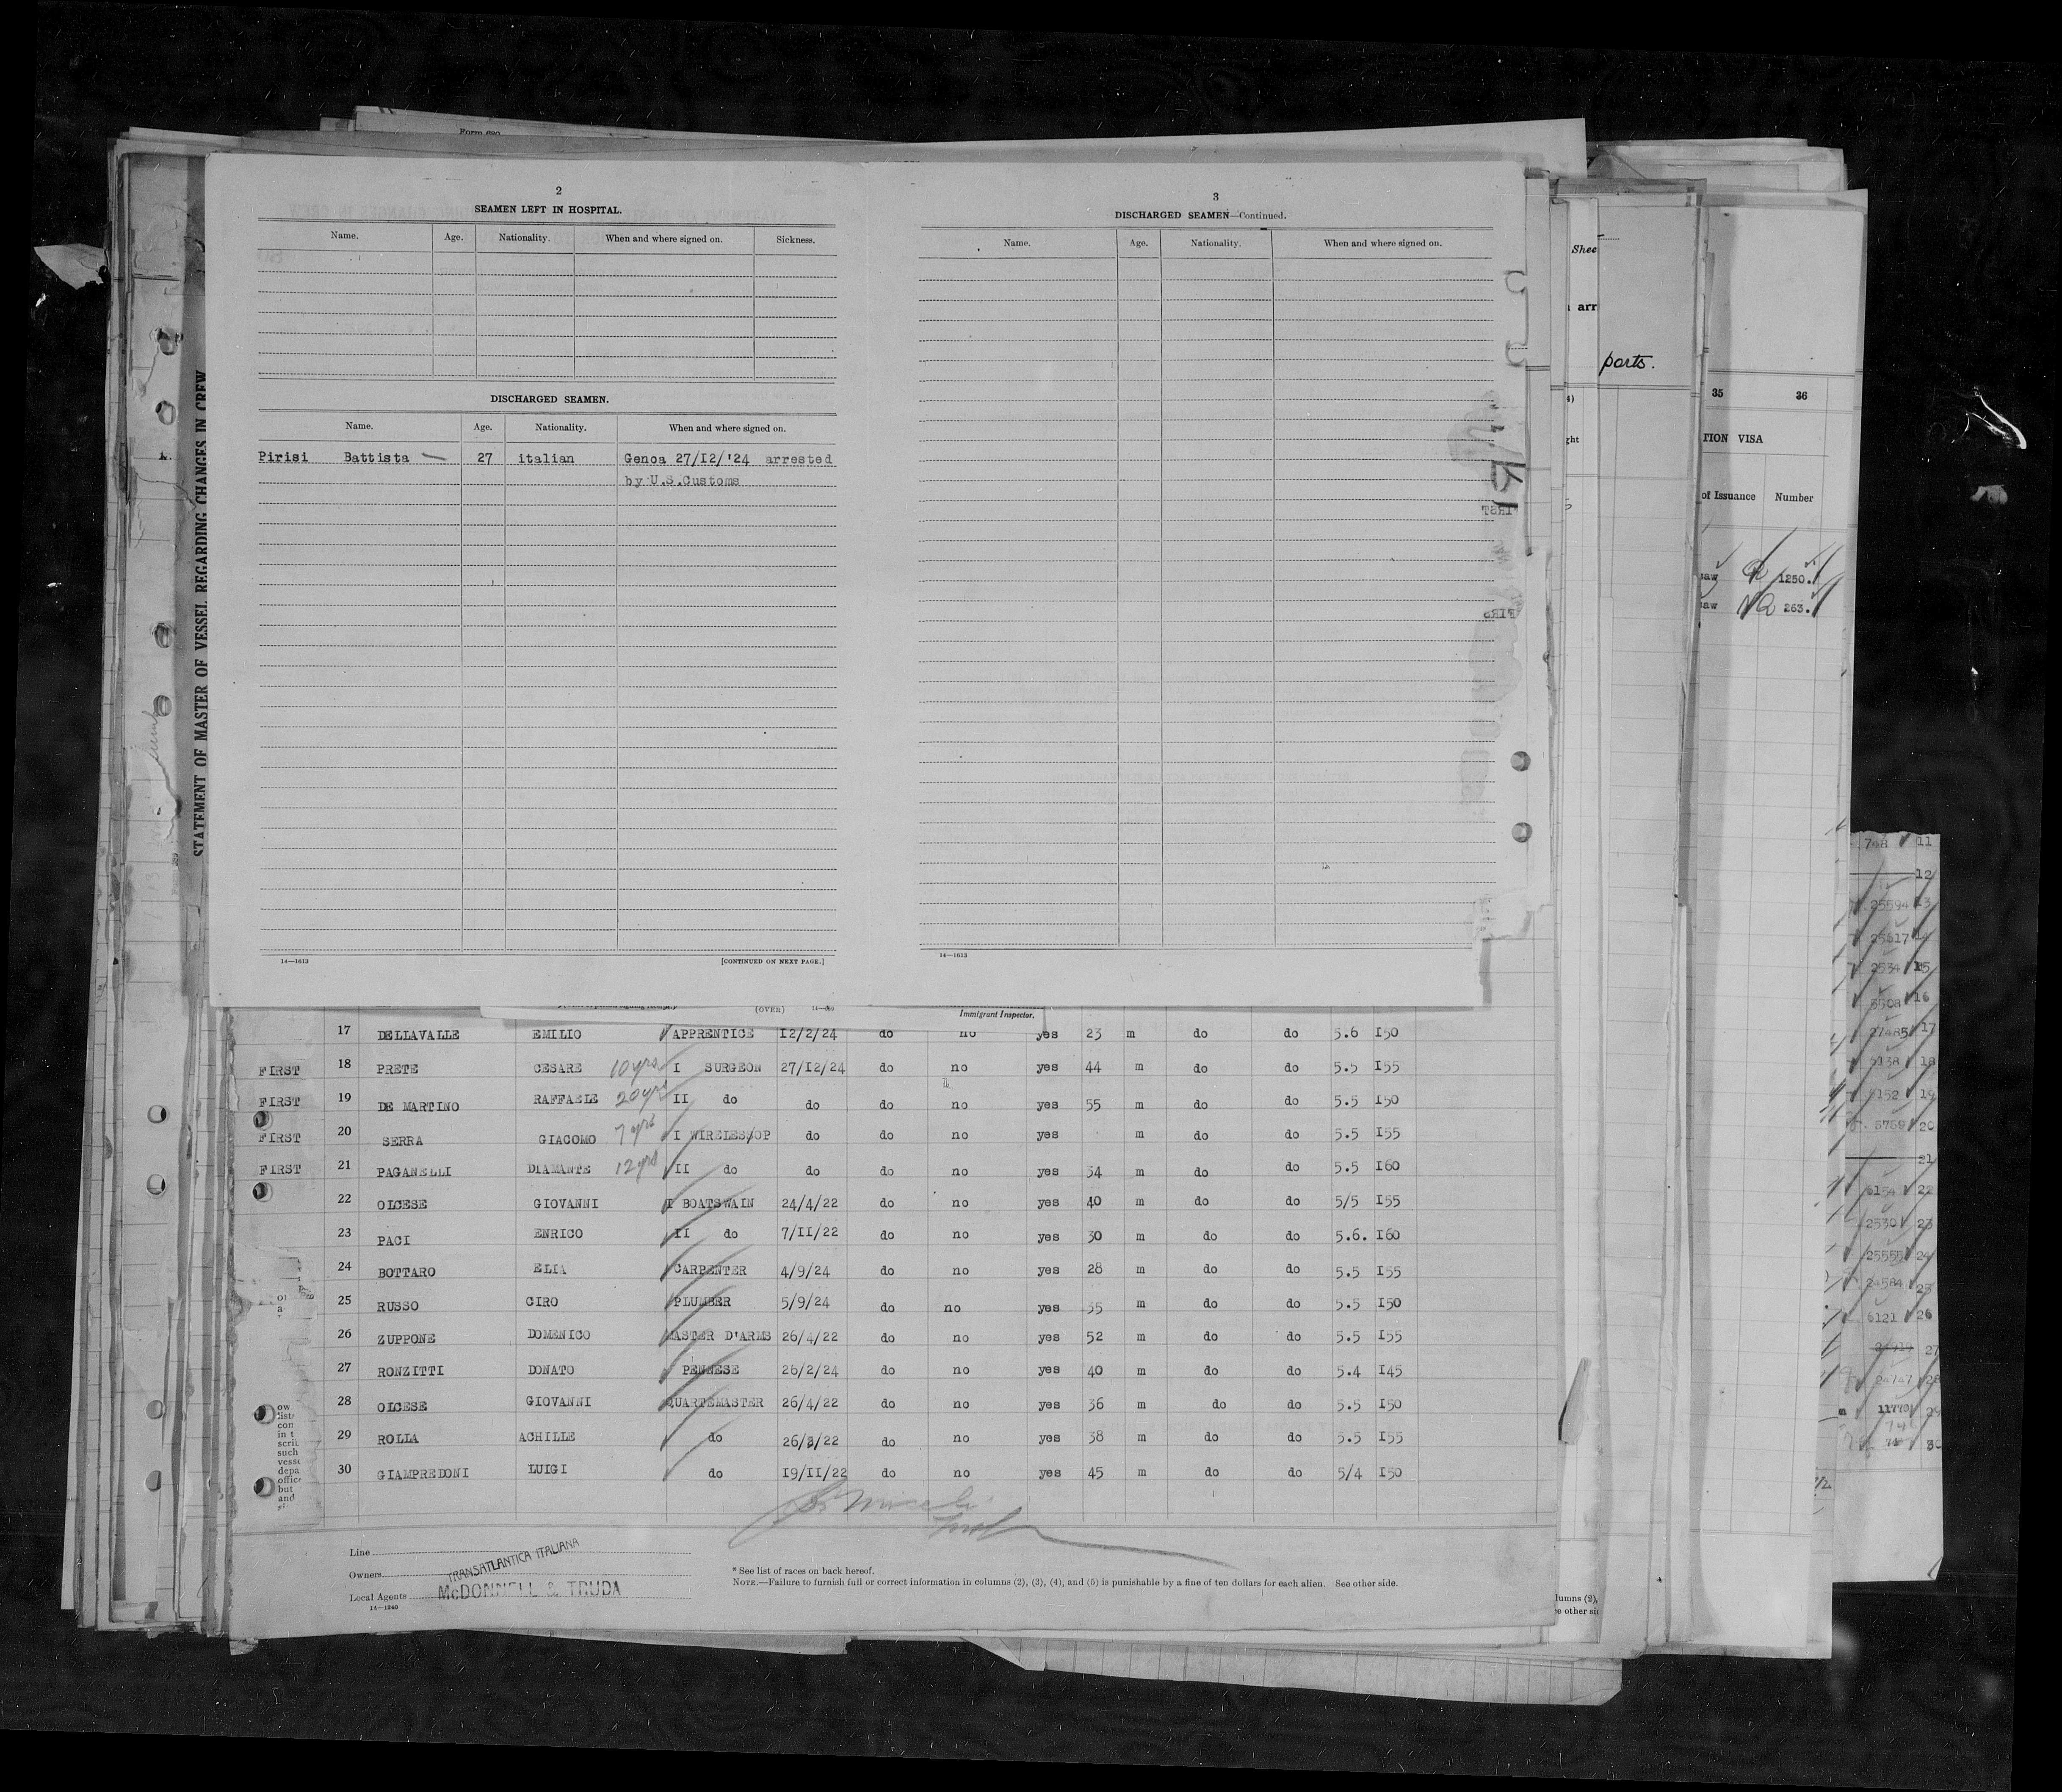 Form 680
STATEMENT OF MASTER OF VESSEL REGARDING CHANGES IN CREW
2
SEAMEN LEFT IN HOSPITAL.
Name. Age. Nationality. When and where signed on. Sickness.
DISCHARGED SEAMEN.
Name. Age. Nationality. When and where signed on.
Pirisi Battista 27 italian Genoa 27/I2/'24 arrested
by U.S.Customs
14—1613 [CONTINUED ON NEXT PAGE.]
3
DISCHARGED SEAMEN—Continued.
Name. Age. Nationality. When and where signed on.
14—1613
(OVER)
Immigrant Inspector.
17 DELLAVALLE EMILIO APPRENTICE I2/2/24 do no yes 23 m do do 5.6 I50
FIRST 18 PRETE CESARE 10yrs I SURGEON 27/I2/24 do no yes 44 m do do 5.5 I55
FIRST 19 DE MARTINO RAFFAELE 20yrs II do do do no yes 55 m do do 5.5 I50
FIRST 20 SERRA GIACOMO 7yrs I WIRELESS/OP do do no yes m do do 5.5 I55
FIRST 21 PAGANELLI DIAMANTE 12yrs II do do do no yes 34 m do do 5.5 I60
22 OLCESE GIOVANNI I BOATSWAIN 24/4/22 do no yes 40 m do do 5/5 I55
23 PACI ENRICO II do 7/II/22 do no yes 30 m do do 5.6. I60
24 BOTTARO ELIA CARPENTER 4/9/24 do no yes 28 m do do 5.5 I55
25 RUSSO CIRO PLUMBER 5/9/24 do no yes 35 m do do 5.5 I50
26 ZUPPONE DOMENICO MASTER D'ARMS 26/4/22 do no yes 52 m do do 5.5 I55
27 RONZITTI DONATO PENNESE 26/2/24 do no yes 40 m do do 5.4 I45
28 OLCESE GIOVANNI QUARTEMASTER 26/4/22 do no yes 36 m do do 5.5 I50
29 ROLLA ACHILLE do 26/8/22 do no yes 38 m do do 5.5 I55
30 GIAMPREDONI LUIGI do I9/II/22 do no yes 45 m do do 5/4 I50
Line
Owners TRANSATLANTICA ITALIANA
Local Agents McDONNELL & TRUDA
14—1240
* See list of races on back hereof.
NOTE.—Failure to furnish full or correct information in columns (2), (3), (4), and (5) is punishable by a fine of ten dollars for each alien. See other side.
Shee
arr
ports.
35 36
TION VISA
of Issuance Number
1250.
NQ 263.
lumns (2),
e other si
748 11
12
25594 13
25617 14
2534 15
16
27485 17
6138 18
19
20
21
6154 22
2530 23
25555 24
24584 25
6121 26
27
24747 28
29
30